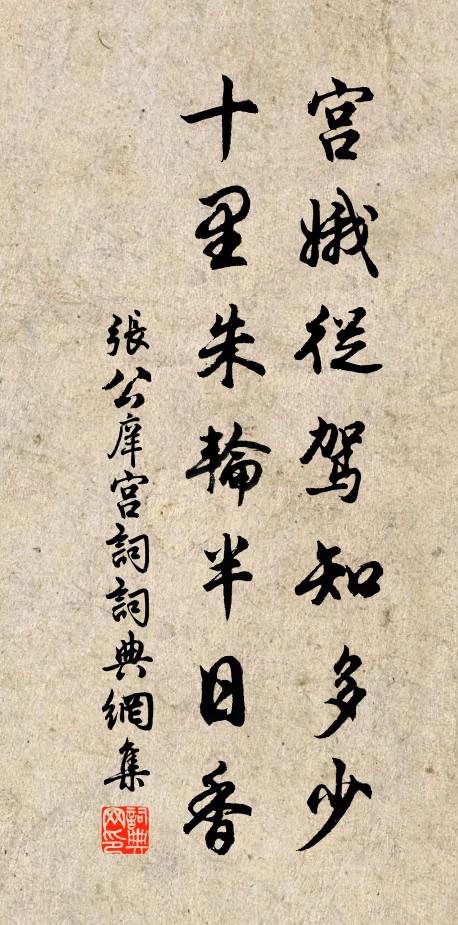 宮娥從駕知多少
十里朱輪半日香
張公庠宮詞詞典網集
詞典網印